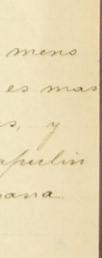 menos
es mas
s, y
apulin
ana